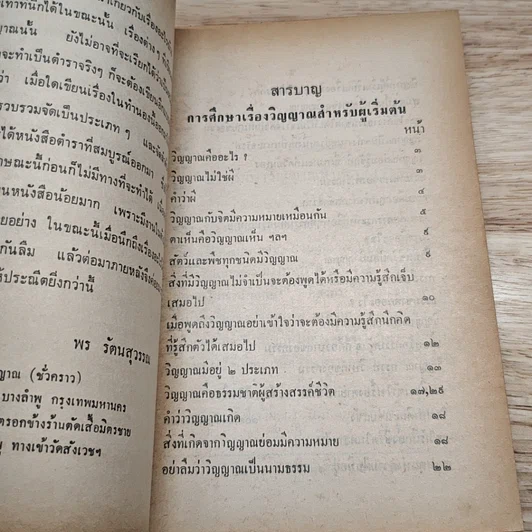 เกี่ยวกับเรื่อง
เท่าที่นึกได้ในขณะนั้น เรื่องต่างๆ ที่
ญาณนั้น ยังไม่อาจที่จะเรียกได้ว่า
จะทำเป็นตำราจริงๆ ก็จะต้องเขียน
ว่า เมื่อใดเขียนเรื่องในทำนองนี้
รวบรวมจัดเป็นประเภท ๆ และ
ได้หนังสือตำราที่สมบูรณ์ออกมา
ขณะนี้ก่อนก็ไม่มีทางที่จะทำได้
นหนังสือน้อยมาก เพราะมีงาน
ยอย่าง ในขณะนี้เมื่อนึกถึงเรื่อง
กันลืม แล้วต่อมาภายหลังจึงค่อย
ร้ประณีตยิ่งกว่านี้
พร รัตนสุวรรณ
ญาณ (ชั่วคราว)
บางลำพู กรุงเทพมหานคร
ตรอกข้างร้านตัดเสื้อมิตรชาย
ทางเข้าวัดสังเวชฯ
สารบาญ
การศึกษาเรื่องวิญญาณสำหรับผู้เริ่มต้น
หน้า
วิญญาณคืออะไร ? ๑
วิญญาณไม่ใช่ผี ๓
คำว่าผี ๔
วิญญาณกับจิตมีความหมายเหมือนกัน ๕
ตาเห็นคือวิญญาณเห็น ฯลฯ ๙
สัตว์และพืชทุกชนิดมีวิญญาณ ๙
สิ่งที่มีวิญญาณไม่จำเป็นจะต้องพูดได้หรือมีความรู้สึกเจ็บ
เสมอไป ๑๐
เมื่อพูดถึงวิญญาณอย่าเข้าใจว่าจะต้องมีความรู้สึกนึกคิด
ที่รู้สึกตัวได้เสมอไป ๑๒
วิญญาณมีอยู่ ๒ ประเภท ๑๓
วิญญาณคือธรรมชาติผู้สร้างสรรค์ชีวิต ๑๗,๒๙
คำว่าวิญญาณเกิด ๑๘
สิ่งที่เกิดจากวิญญาณย่อมมีความหมาย ๑๘
อย่าลืมว่าวิญญาณเป็นนามธรรม ๒๒